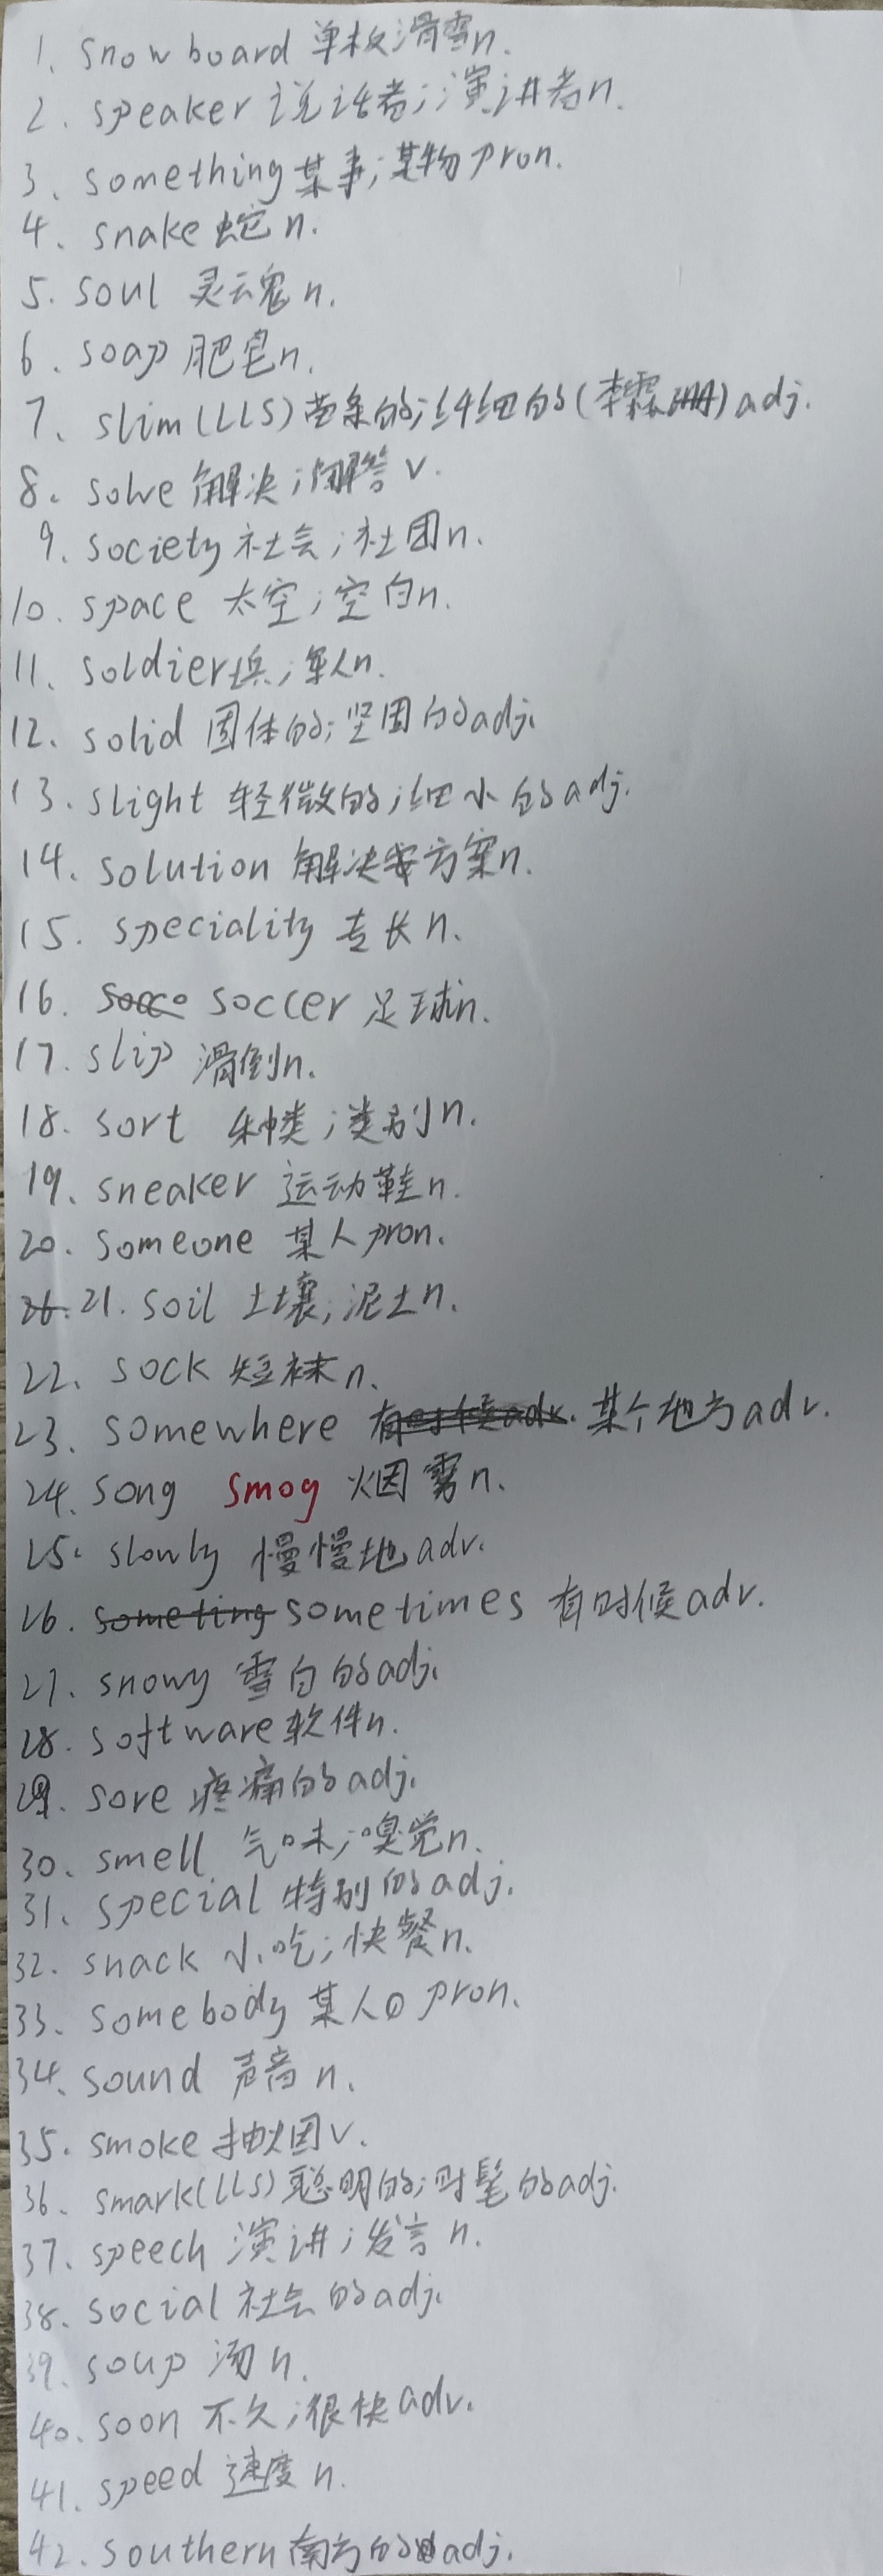 1. snowboard 单板滑雪n.
2. speaker 说话者;演讲者n.
3. something 某事;某物 pron.
4. snake 蛇 n.
5. soul 灵魂 n.
6. soap 肥皂n.
7. slim(LLS) 苗条的;纤细的(李霖珊) adj.
8. solve 解决;解答 v.
9. society 社会;社团n.
10. space 太空;空白n.
11. soldier 兵;军人n.
12. solid 固体的;坚固的adj.
13. slight 轻微的;细小的adj.
14. solution 解决方案n.
15. speciality 专长 n.
16. soccer 足球n.
17. slip 滑倒n.
18. sort 种类;类别n.
19. sneaker 运动鞋n.
20. someone 某人 pron.
21. soil 土壤;泥土n.
22. sock 短袜n.
23. somewhere 某个地方adv.
24. song smog 烟雾n.
25. slowly 慢慢地adv.
26. sometimes 有时候adv.
27. snowy 雪白的adj.
28. software 软件n.
29. sore 疼痛的adj.
30. smell 气味;嗅觉n.
31. special 特别的adj.
32. snack 小吃;快餐n.
33. somebody 某人 pron.
34. sound 声音 n.
35. smoke 抽烟v.
36. smark(LLS) 聪明的;时髦的adj.
37. speech 演讲;发言 n.
38. social 社会的adj.
39. soup 汤 n.
40. soon 不久;很快adv.
41. speed 速度 n.
42. southern 南方的adj.